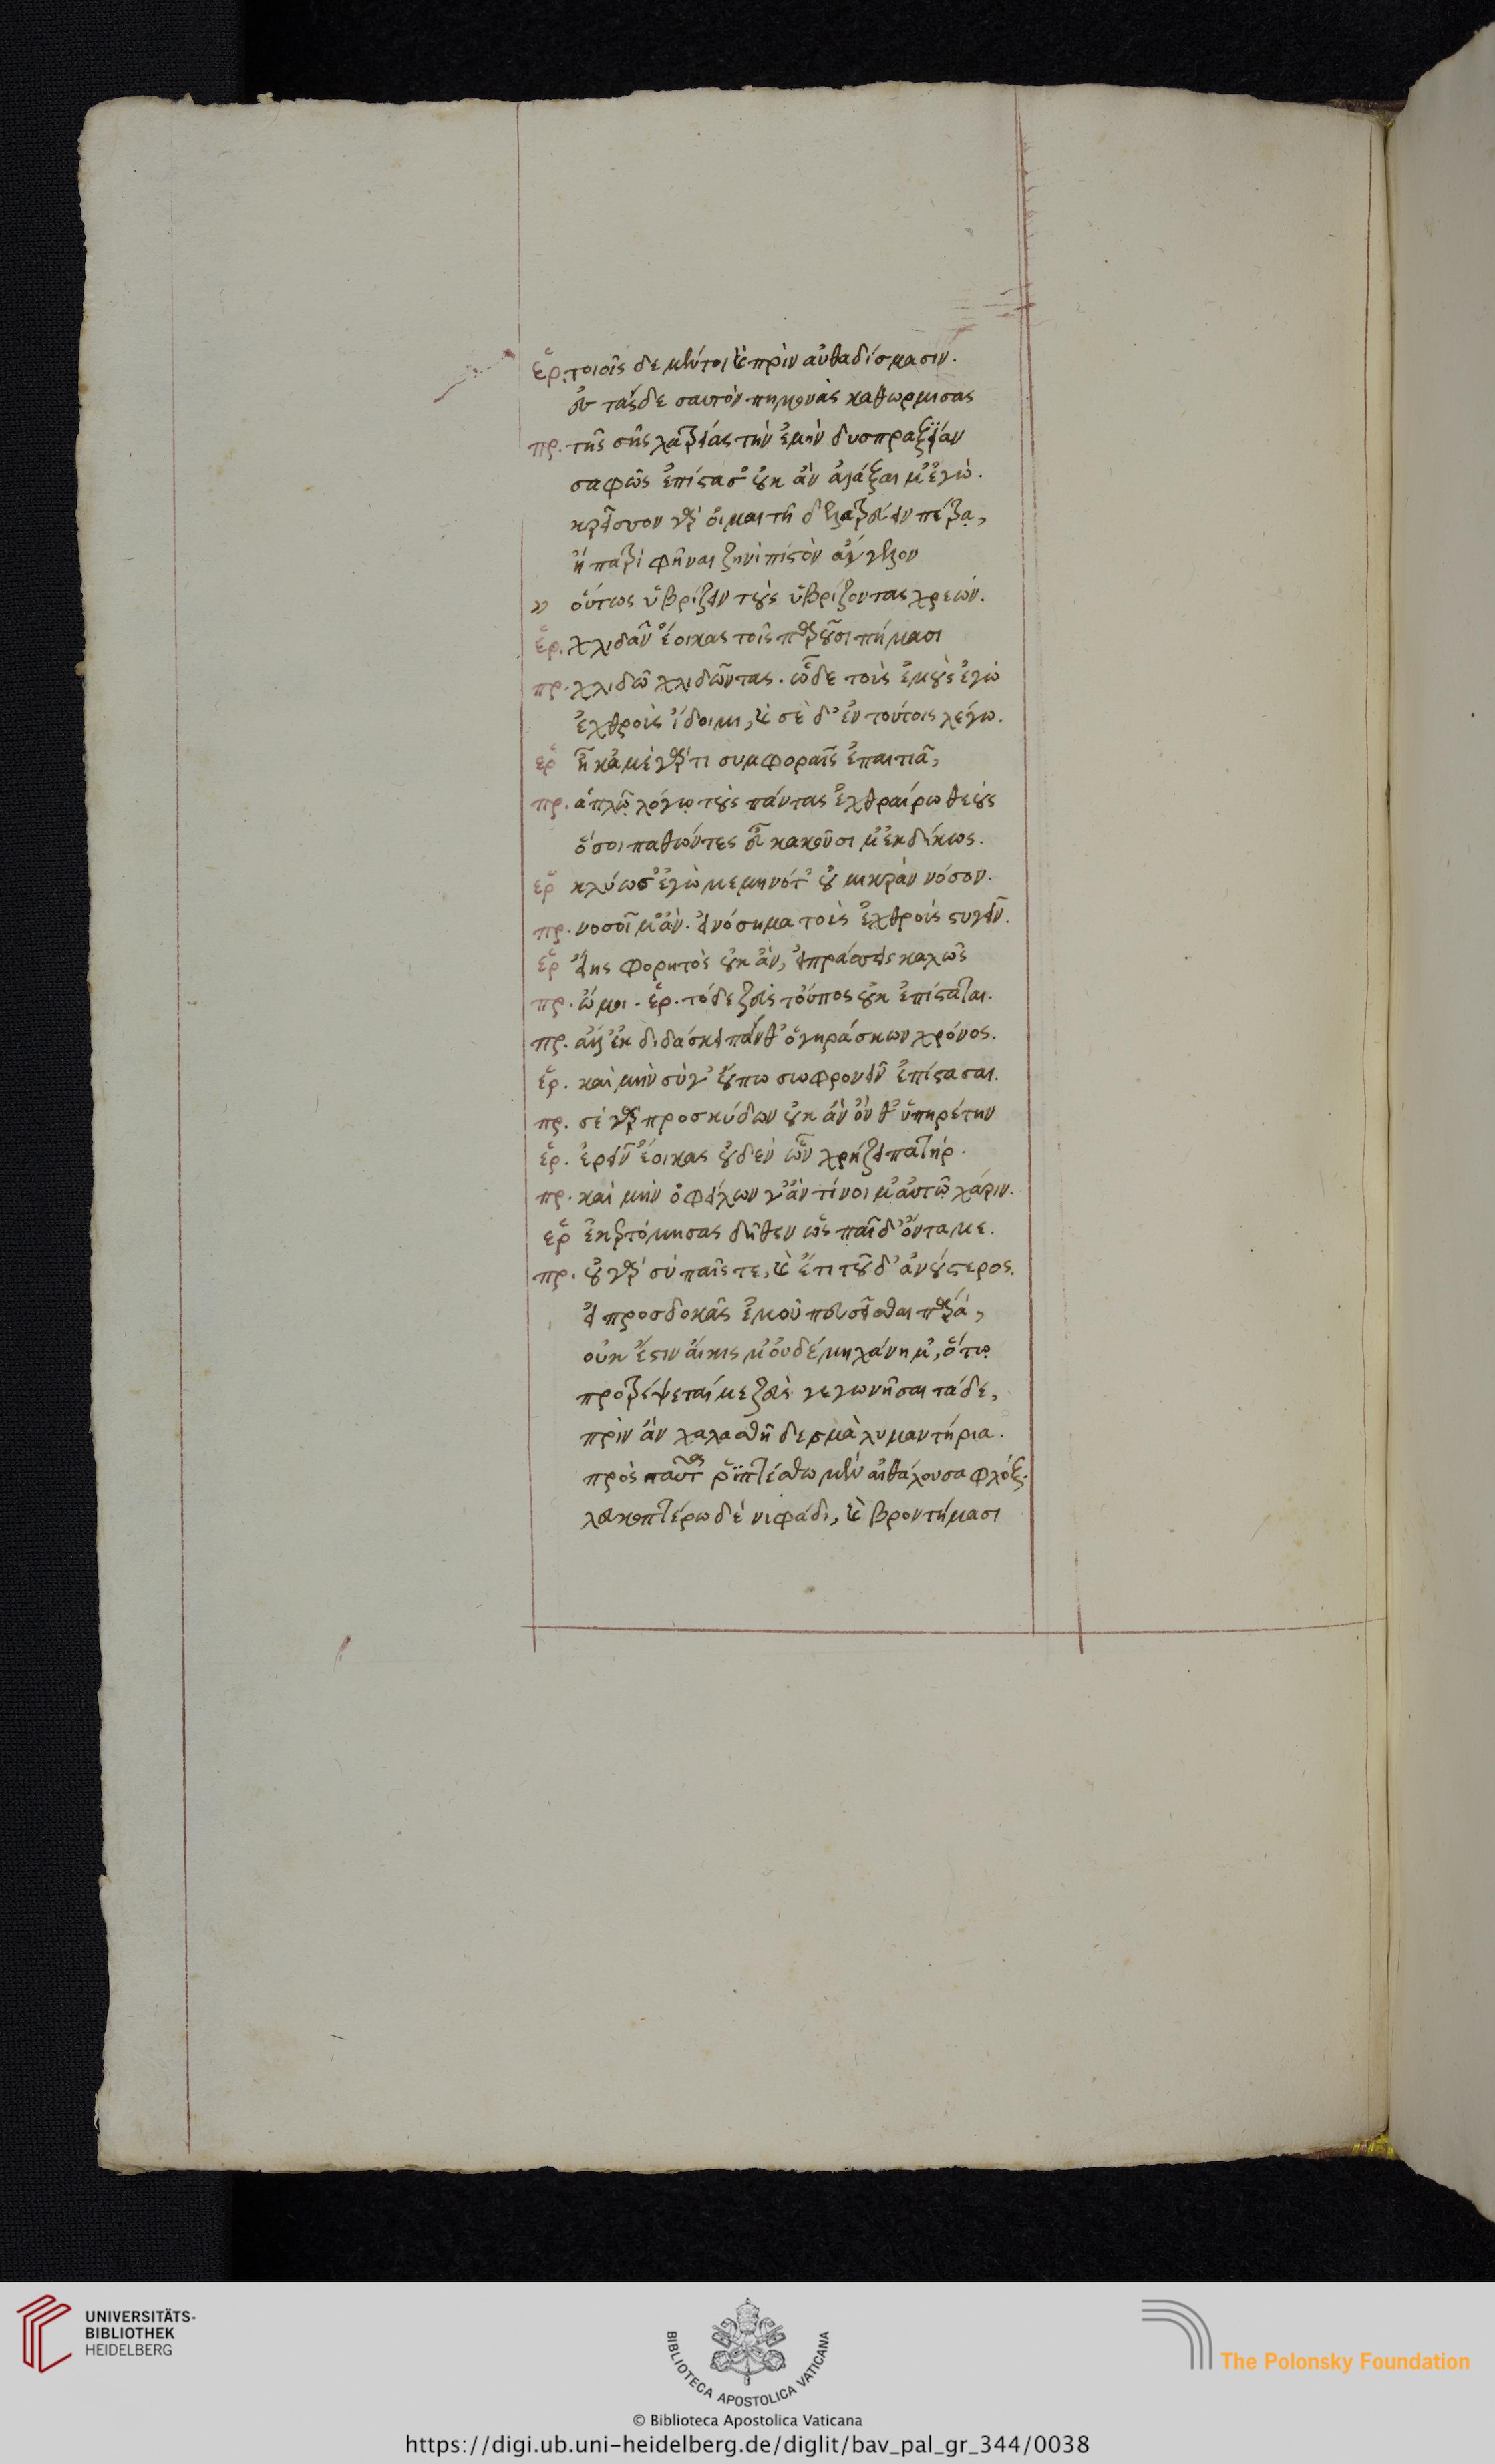 ἑρ. τοιοῖς δε μέντοι καὶ πρὶν αὐθαδίσμασιν.
τάσδε σαυτὸν πημονὰς καθώρμισας
πρ. τῆς σῆς λατρείας τὴν ἐμὴν δυσπραξίαν
σαφῶς ἐπίστασ' οὐκ ἂν ἀλλάξαιμ' ἐγώ.
κρεῖσσον γὰρ οἶμαι τῇ δε λατρεύειν πέτρᾳ,
ἢ πατρὶ φῆναι ζηνὶ πιστὸν ἄγγελον
οὕτως ὑβρίζειν τοὺς ὑβρίζοντας χρεών.
ἑρ. χλιδᾶν ἔοικας τοῖς παροῦσι πήμασι
πρ. χλιδῶ χλιδῶντας. ὧδε τοὺς ἐμοὺς ἐγὼ
ἐχθροὺς ἴδοιμι, καὶ σὲ δ' ἐν τούτοις λέγω.
ἑρ ἦ κἀμὲ γάρ τι συμφοραῖς ἐπαιτιᾶ,
πρ. ἁπλῷ λόγῳ τοὺς πάντας ἐχθραίρω θεοὺς
ὅσοι παθόντες εὖ κακοῦσι μ' ἐκδίκως.
ἑρ κλύω σ' ἐγὼ μεμηνότ' οὐ μικρὰν νόσον.
πρ. νοσοῖμ' ἄν. εἰ νόσημα τοὺς ἐχθροὺς στυγεῖν.
ἑρ εἴης φορητὸς οὐκ ἄν, εἰ πράσσεις καλῶς
πρ. ὤμοι. ἑρ. τόδε ζεὺς τοὔπος οὐκ ἐπίσταται.
πρ. ἀλλ' ἐκδιδάσκει πάνθ' ὁ γηράσκων χρόνος.
ἑρ. καὶ μὴν σύγ' οὔπω σωφρονεῖν ἐπίστασαι.
πρ. σὲ γὰρ προσηύδων οὐκ ἂν ὄνθ' ὑπηρέτην
ἑρ. ἐρεῖν ἔοικας οὐδὲν ὧν χρῄζει πατήρ.
πρ. καὶ μὴν ὀφείλων γ' ἂν τίνοιμ' αὐτῷ χάριν.
ἑρ ἐκερτόμησας δῆθεν ὡς παῖδ' ὄντα με.
πρ. οὐ γὰρ σὺ παῖς τε, καὶ ἔτι τοῦδ' ἀνούστερος.
εἰ προσδοκᾶς ἐμοῦ πευσεῖσθαι πάρα,
οὐκ ἔστιν αἴκισμ' οὐδὲ μηχάνημ', ὅτῳ
προτρέψεταί με ζεὺς γεγωνῆσαι τάδε,
πρὶν ἂν χαλασθῇ δεσμὰ λυμαντήρια.
πρὸς ταῦτα ῥϊπτέσθω μὲν αἰθάλουσα φλόξ.
λευκοπτέρω δὲ νιφάδι, καὶ βροντήμασι
UNIVERSITÄTS-
BIBLIOTHEK
HEIDELBERG
BIBLIOTECA APOSTOLICA VATICANA
The Polonsky Foundation
© Biblioteca Apostolica Vaticana
https://digi.ub.uni-heidelberg.de/diglit/bav_pal_gr_344/0038